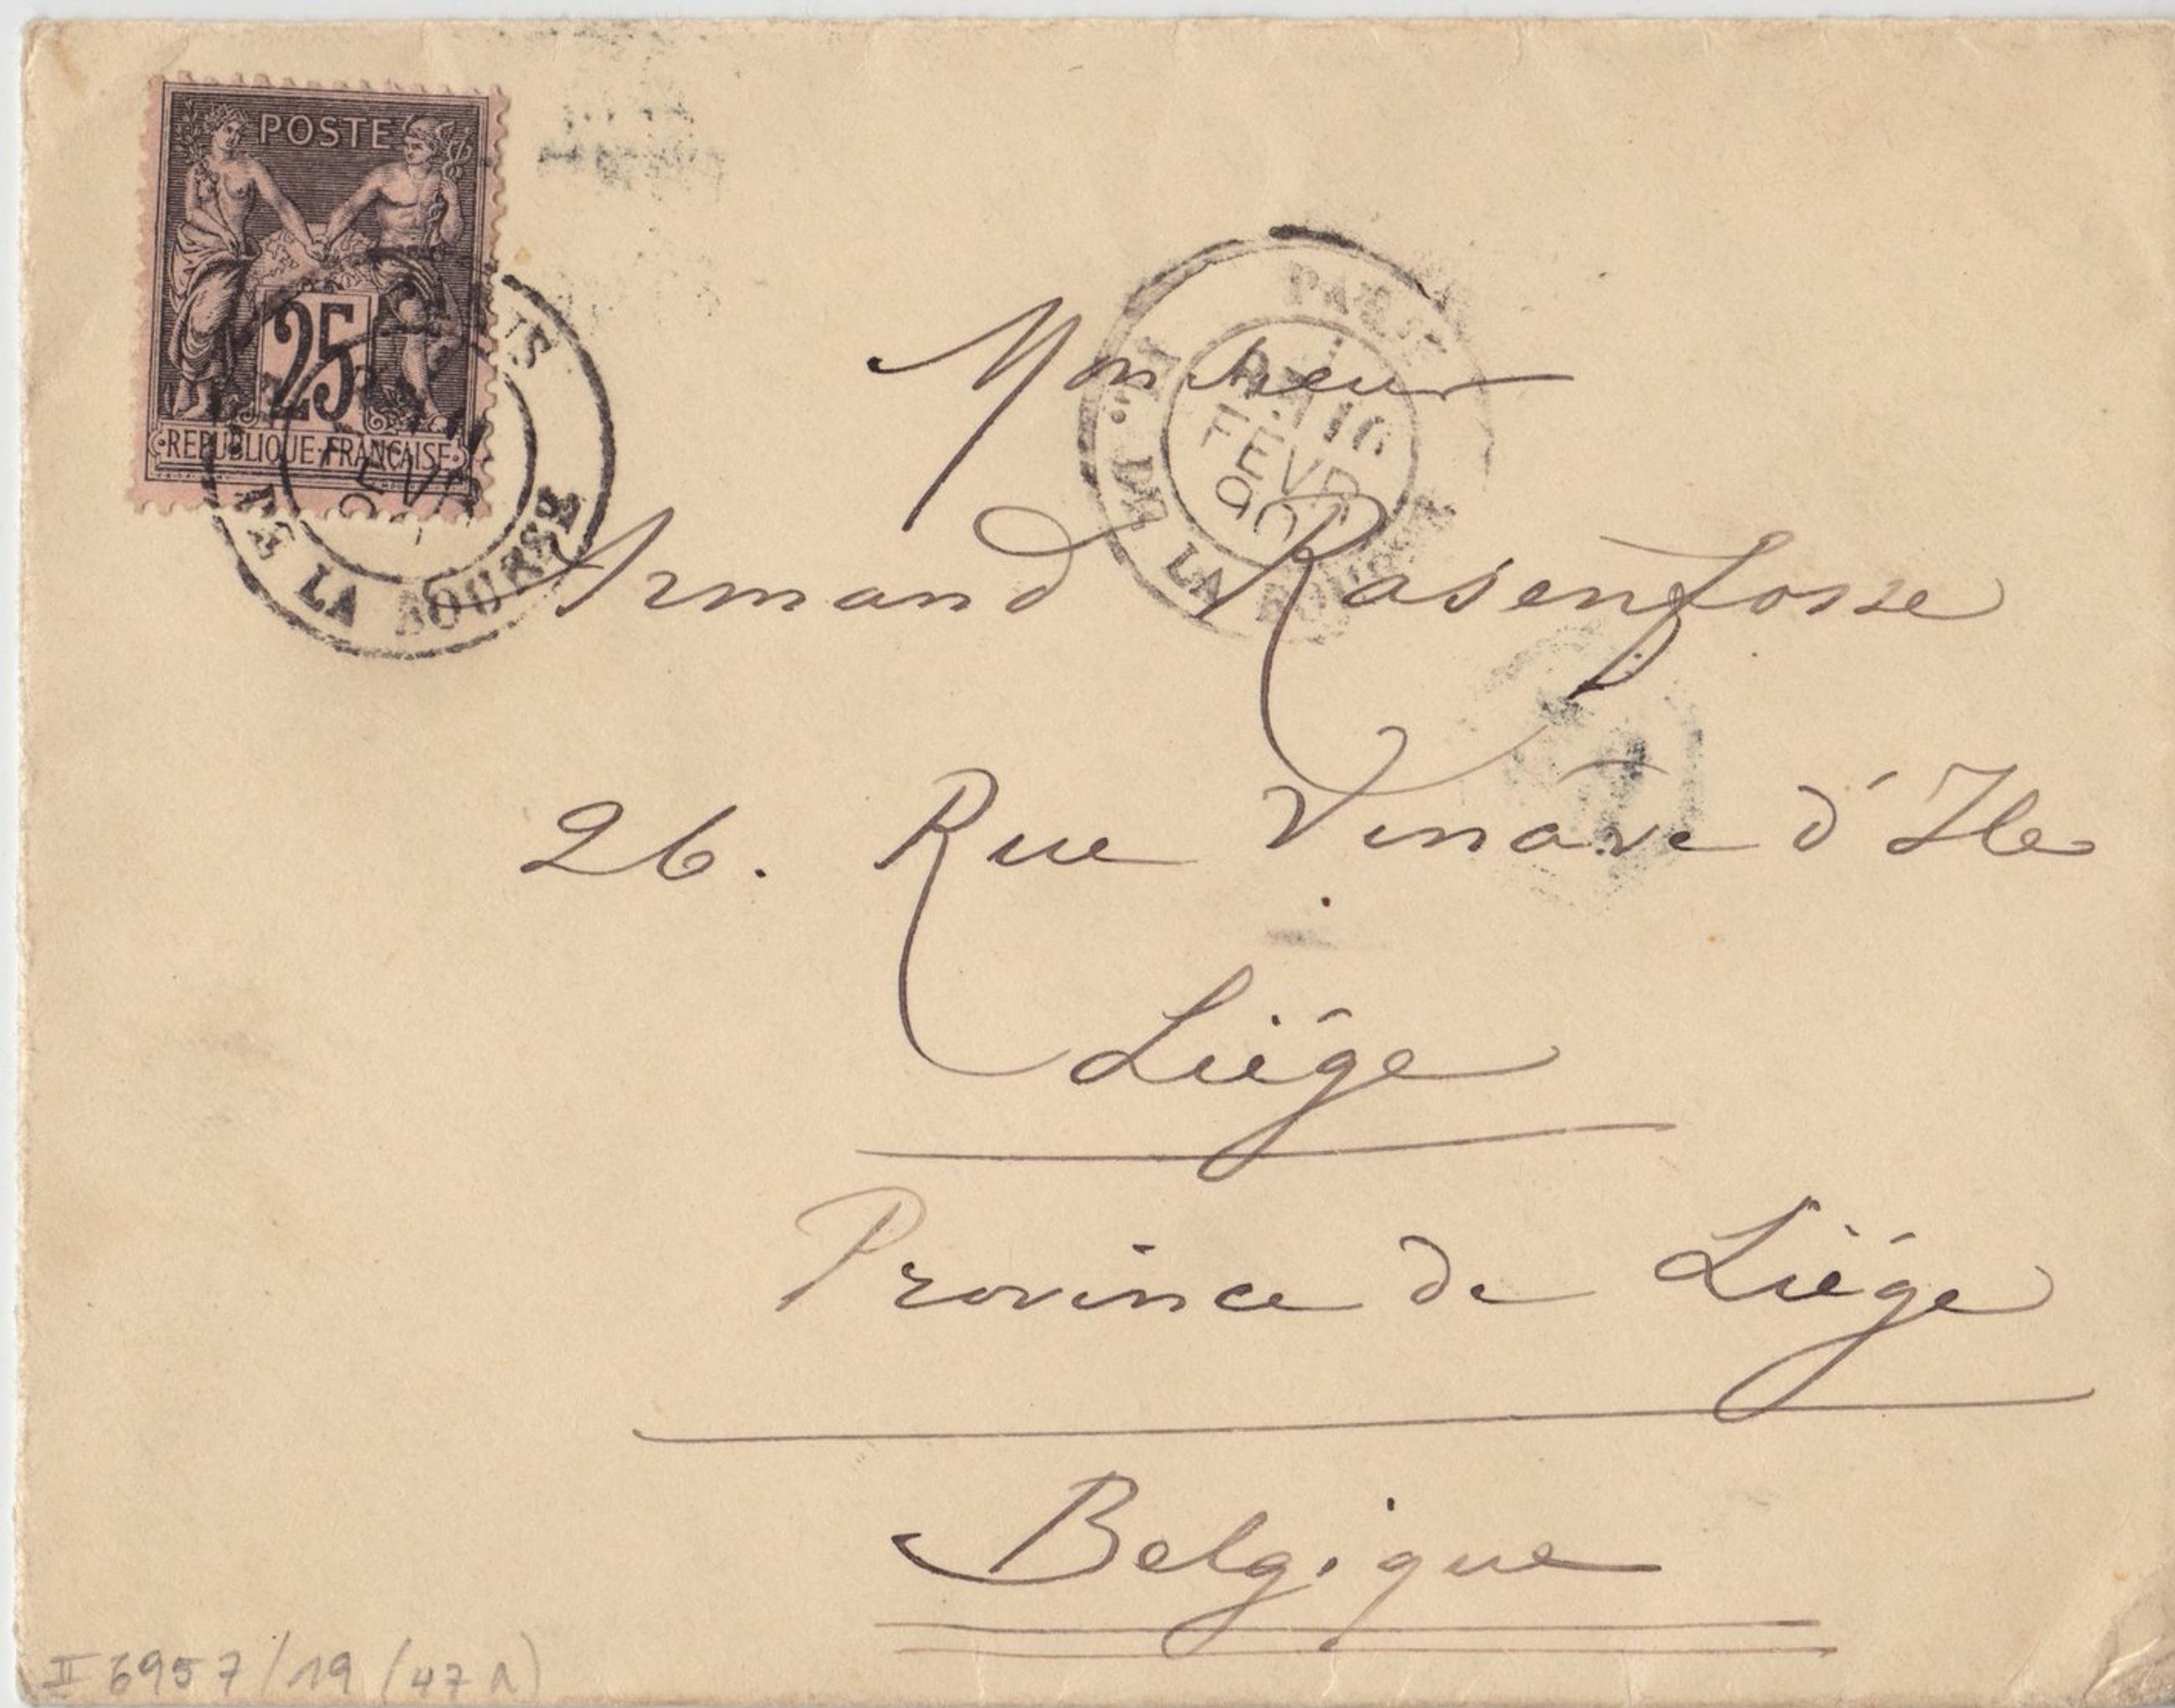 POSTE
25
REPUBLIQUE FRANÇAISE
DE LA BOURSE
PARIS
PL. DE LA BOURSE
16
FEVR
90
Monsieur
Armand Rasenfosse
26. Rue Vinâve d'Ile
Liége
Province de Liége
Belgique
II 6957/19 (47 A)